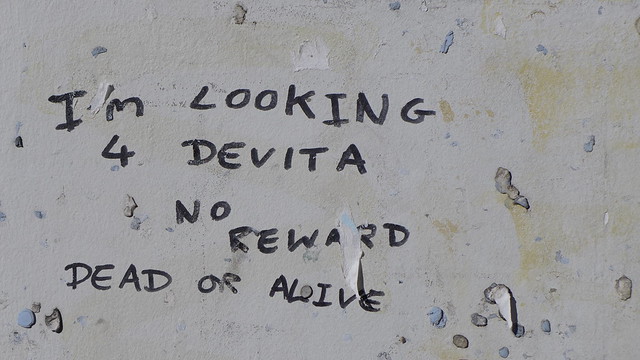 I'm LOOKING
4 DEVITA
NO
REWARD
DEAD OR ALIVE